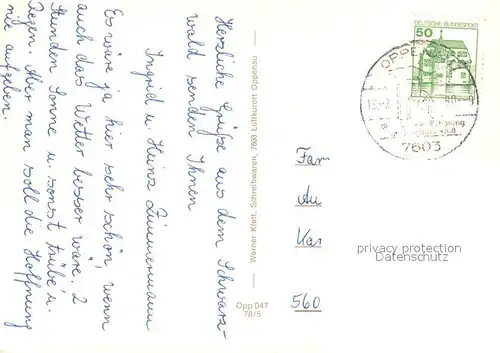 Herzliche Grüße aus dem Schwarz-
wald senden Ihnen
Ingrid u. Heinz Zimmermann
Es wäre ja hier sehr schön, wenn
auch das Wetter besser wäre. 2
Stunden Sonne u. sonst trübe u.
Regen. Aber man soll die Hoffnung
nie aufgeben.
Werner Klett, Schreibwaren, 7603 Luftkurort Oppenau
Opp 047
78/5
DEUTSCHE BUNDESPOST
50
OPPENAU
7603
Fam
Au
Kar
560
privacy protection
Datenschutz